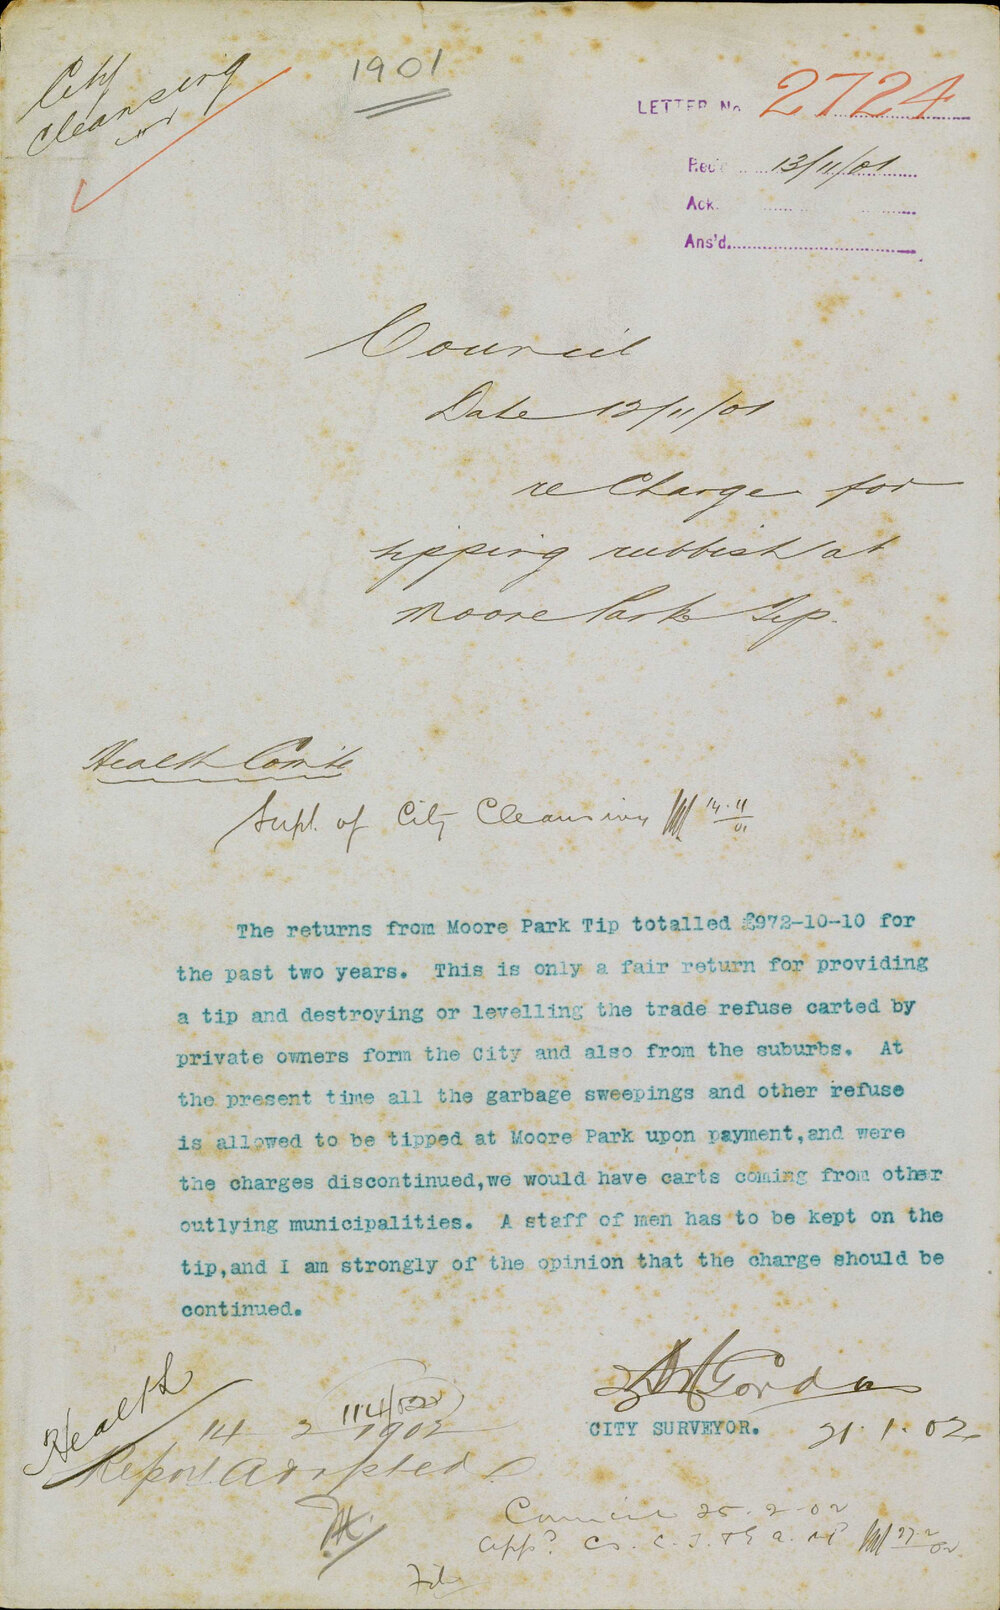 City
Cleansing
1901
LETTER No 2724
Rec'd 13/11/01
Ack.
Ans'd.
Council
Date 12/11/01
re Charge for
tipping rubbish at
Moore Park Tip.
Health Com'te
Supt. of City Cleansing 14.11/01
The returns from Moore Park Tip totalled £972-10-10 for
the past two years. This is only a fair return for providing
a tip and destroying or levelling the trade refuse carted by
private owners form the City and also from the suburbs. At
the present time all the garbage sweepings and other refuse
is allowed to be tipped at Moore Park upon payment,and were
the charges discontinued,we would have carts coming from other
outlying municipalities. A staff of men has to be kept on the
tip,and I am strongly of the opinion that the charge should be
continued.
Gordon
CITY SURVEYOR. 21.1.02
Health
14 2 1902
Report Adopted
Council 25.2.02
27.2/02